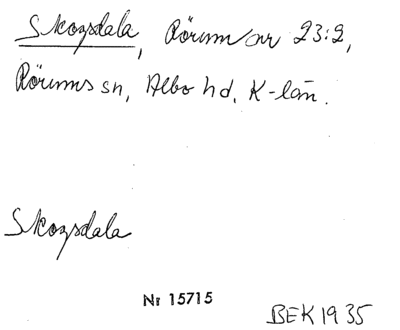 Skogsdala, Rörum nr 23:2,
Rörums sn, Albo hd. K-län.
Skogsdala
Nr 15715
BEK 1935